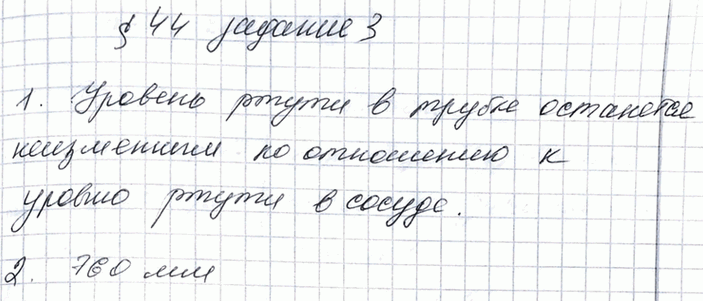 § 44 задание 3
1. Уровень ртути в трубке останется
неизменным по отношению к
уровню ртути в сосуде.
2. 760 мм